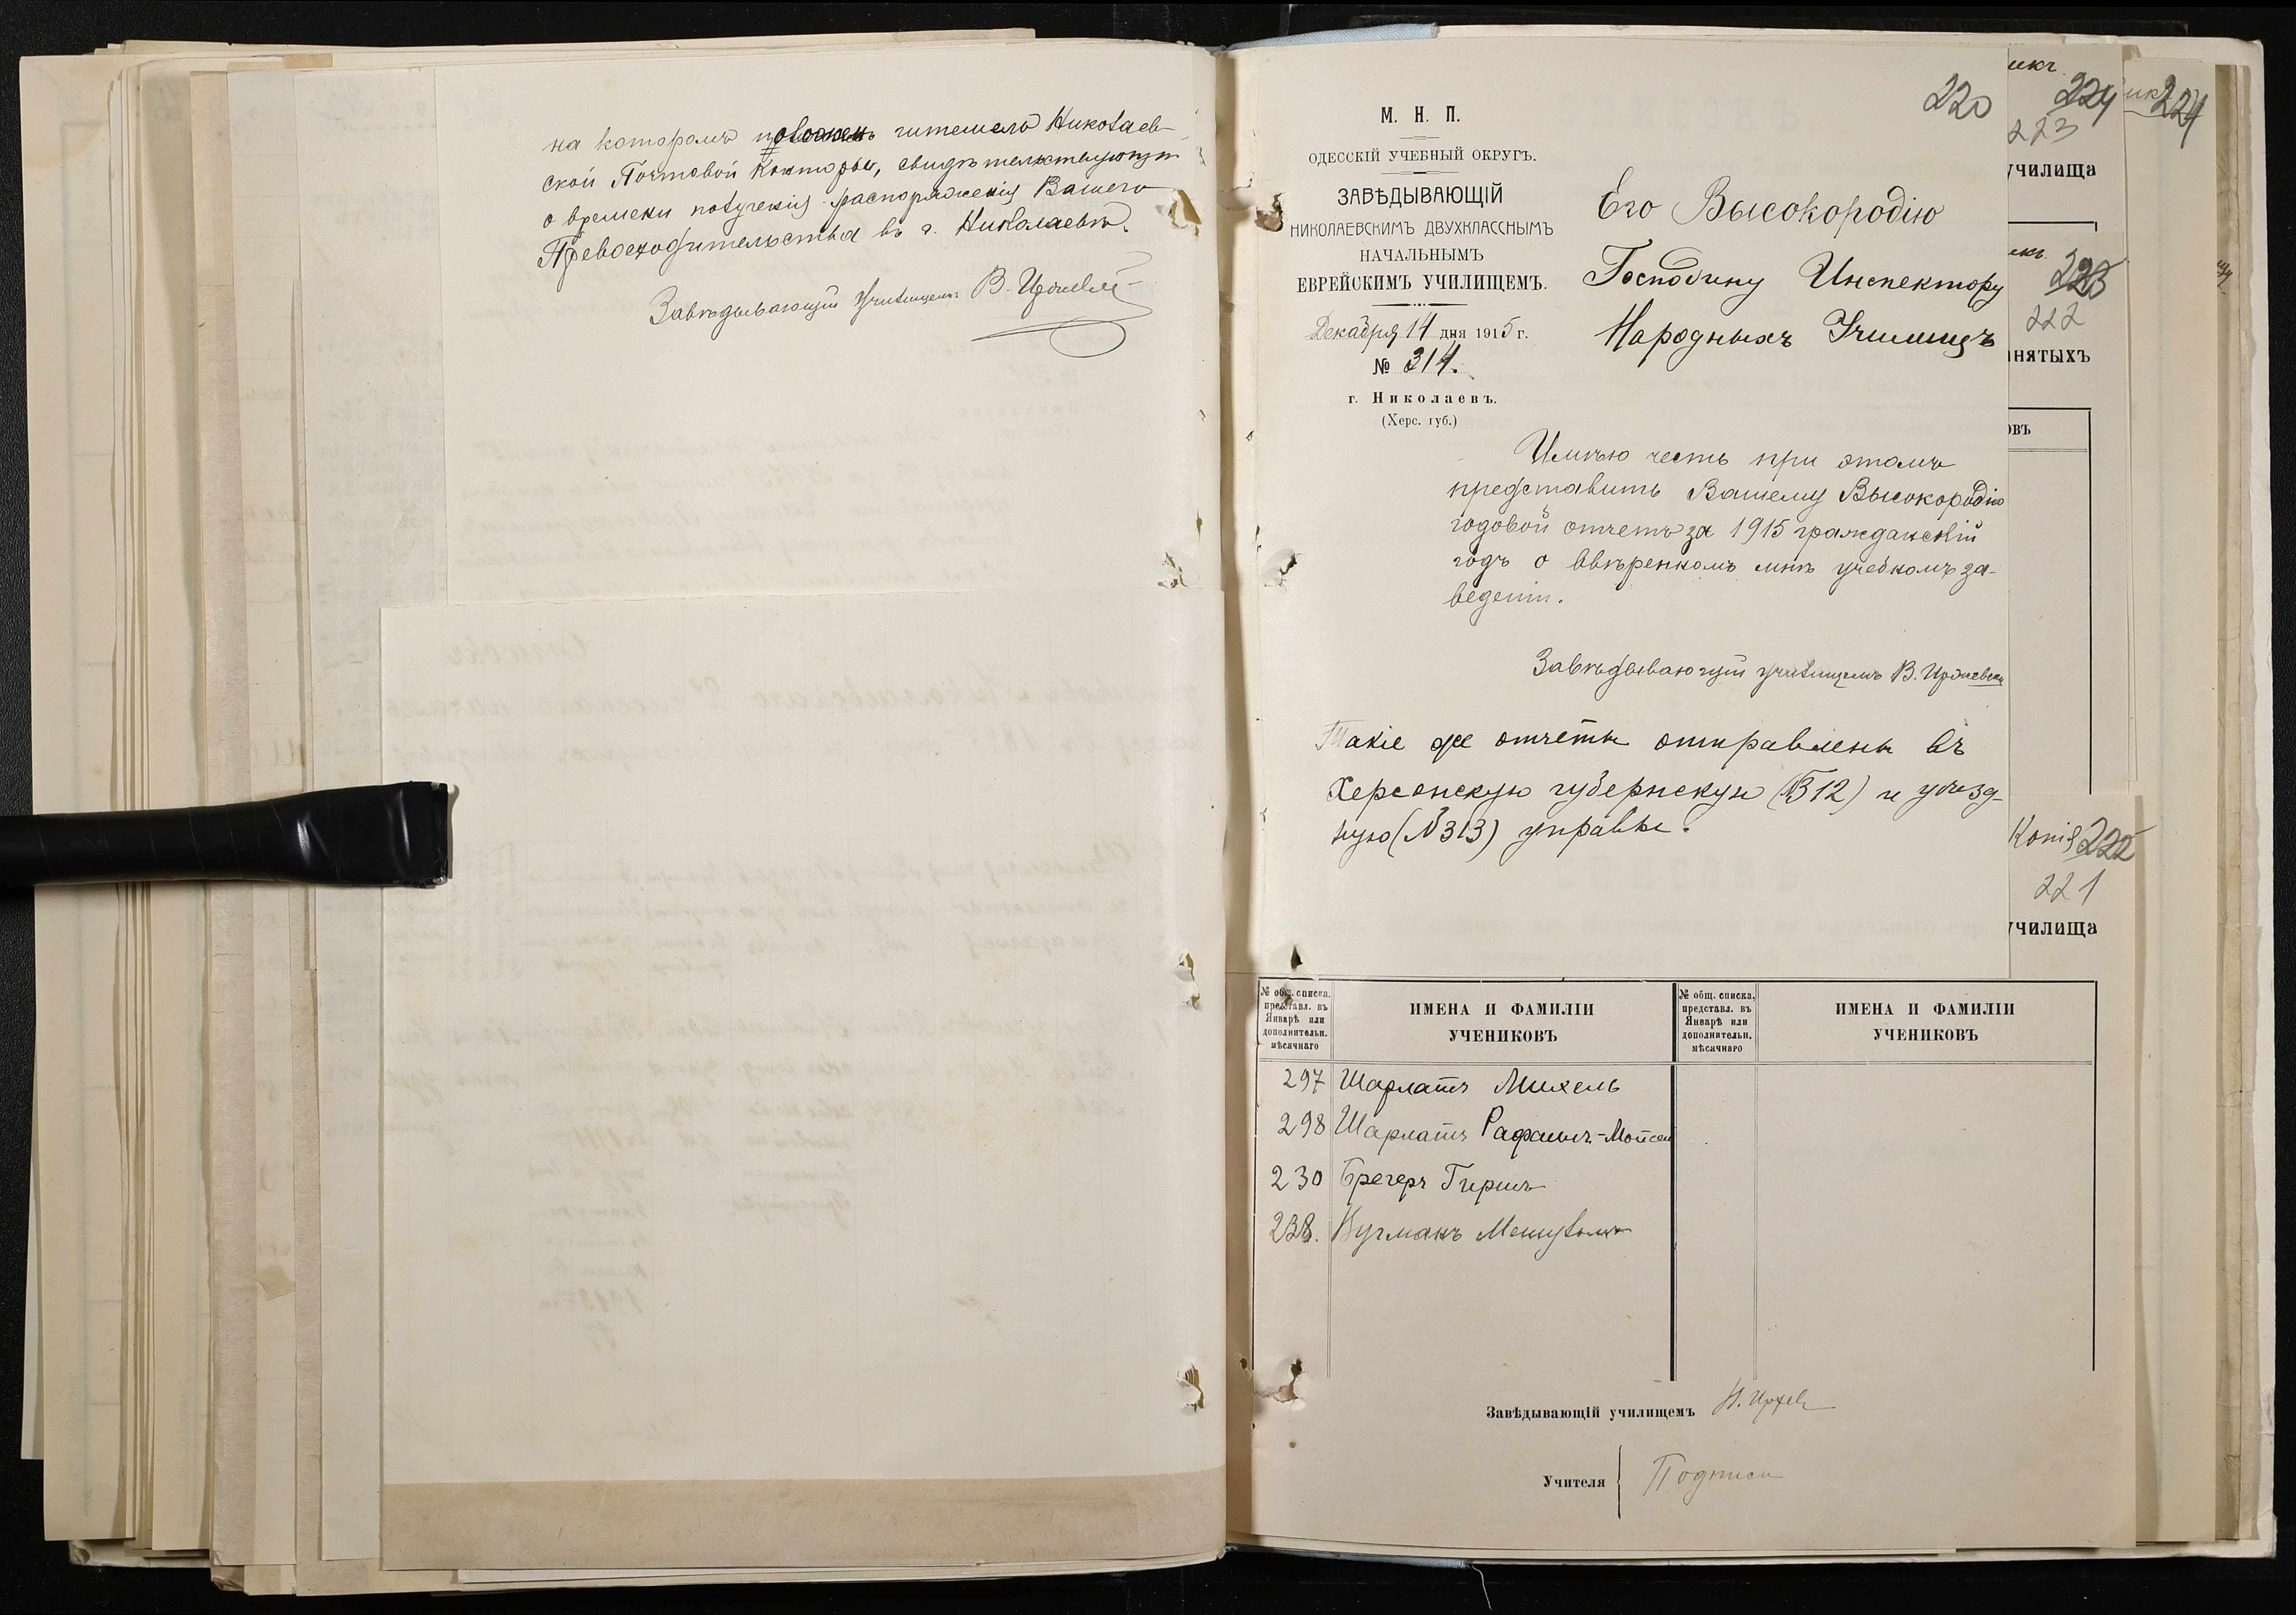 на которомъ положенъ штемпель Николаев-
ской Почтовой Конторы, свидѣтельствующій
о времени полученія распоряженія Вашего
Превосходительства въ г. Николаевѣ.
Завѣдывающій Училищемъ В.
220
М. Н. П.
ОДЕССКІЙ УЧЕБНЫЙ ОКРУГЪ.
ЗАВѢДЫВАЮЩІЙ
НИКОЛАЕВСКИМЪ ДВУХКЛАССНЫМЪ
НАЧАЛЬНЫМЪ
ЕВРЕЙСКИМЪ УЧИЛИЩЕМЪ.
Декабря 14 дня 1915 г.
№ 314.
г. Николаевъ.
(Херс. губ.)
Его Высокородію
Господину Инспектору
Народныхъ Училищъ
Имѣю честь при этомъ
представить Вашему Высокородію
годовой отчетъ за 1915 гражданскій
годъ о ввѣренномъ мнѣ учебномъ за-
веденіи.
Завѣдывающій училищемъ В.
Такіе же отчеты отправлены въ
Херсонскую губернскую (№312) и уѣзд-
ную (№313) управы.
224
223
училища
223
222
нятыхъ
овъ
Копія 222
221
училища
224
№ общ. списка, представл. въ Январѣ или дополнительн. мѣсячнаго
ИМЕНА И ФАМИЛІИ УЧЕНИКОВЪ
№ общ. списка, представл. въ Январѣ или дополнительн. мѣсячнаго
ИМЕНА И ФАМИЛІИ УЧЕНИКОВЪ
297 Шарлатъ Михель
298 Шарлатъ Рафаилъ-Мойсей
230 Брегеръ Гиршъ
238. Кучманъ Мешуламъ
Завѣдывающій училищемъ
Учителя Подписи